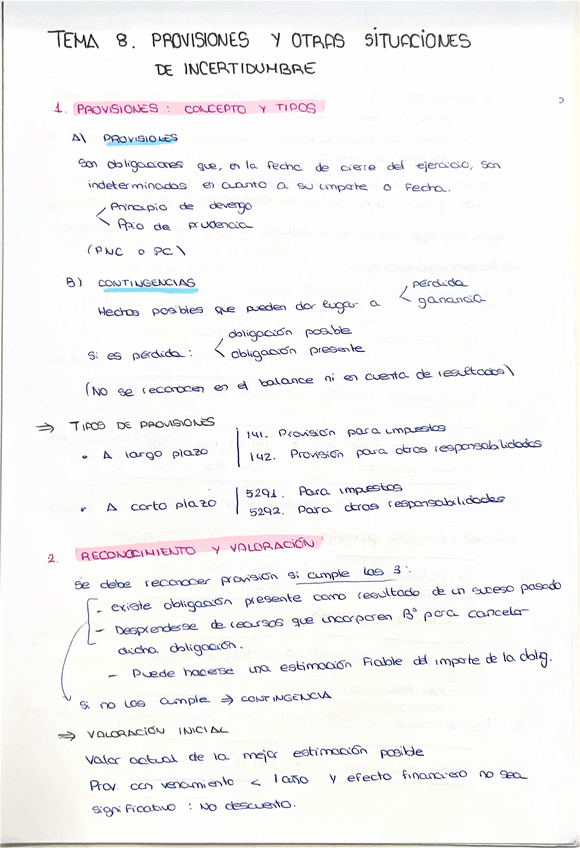 TEMA 8. PROVISIONES Y OTRAS SITUACIONES
DE INCERTIDUMBRE
1. PROVISIONES: CONCEPTO Y TIPOS
A) PROVISIONES
Son obligaciones que, en la fecha de cierre del ejercicio, son
indeterminadas en cuanto a su importe o fecha.
Principio de devengo
Ppio de prudencia
(PNC o PC)
B) CONTINGENCIAS
Hechos posibles que pueden dar lugar a
pérdida
ganancia
Si es pérdida:
obligación posible
obligación presente
(No se reconocen en el balance ni en cuenta de resultados)
⇒ TIPOS DE PROVISIONES
• A largo plazo
141. Provisión para impuestos
142. Provisión para otras responsabilidades
• A corto plazo
5291. Para impuestos
5292. Para otras responsabilidades
2. RECONOCIMIENTO Y VALORACIÓN
Se debe reconocer provisión si cumple las 3:
- existe obligación presente como resultado de un suceso pasado
- Desprenderse de recursos que incorporen Bº para cancelar
dicha obligación.
- Puede hacerse una estimación fiable del importe de la oblig.
Si no las cumple ⇒ CONTINGENCIA
⇒ VALORACIÓN INICIAL
Valor actual de la mejor estimación posible
Prov. con vencimiento < 1 año y efecto financiero no sea
significativo: No descuento.